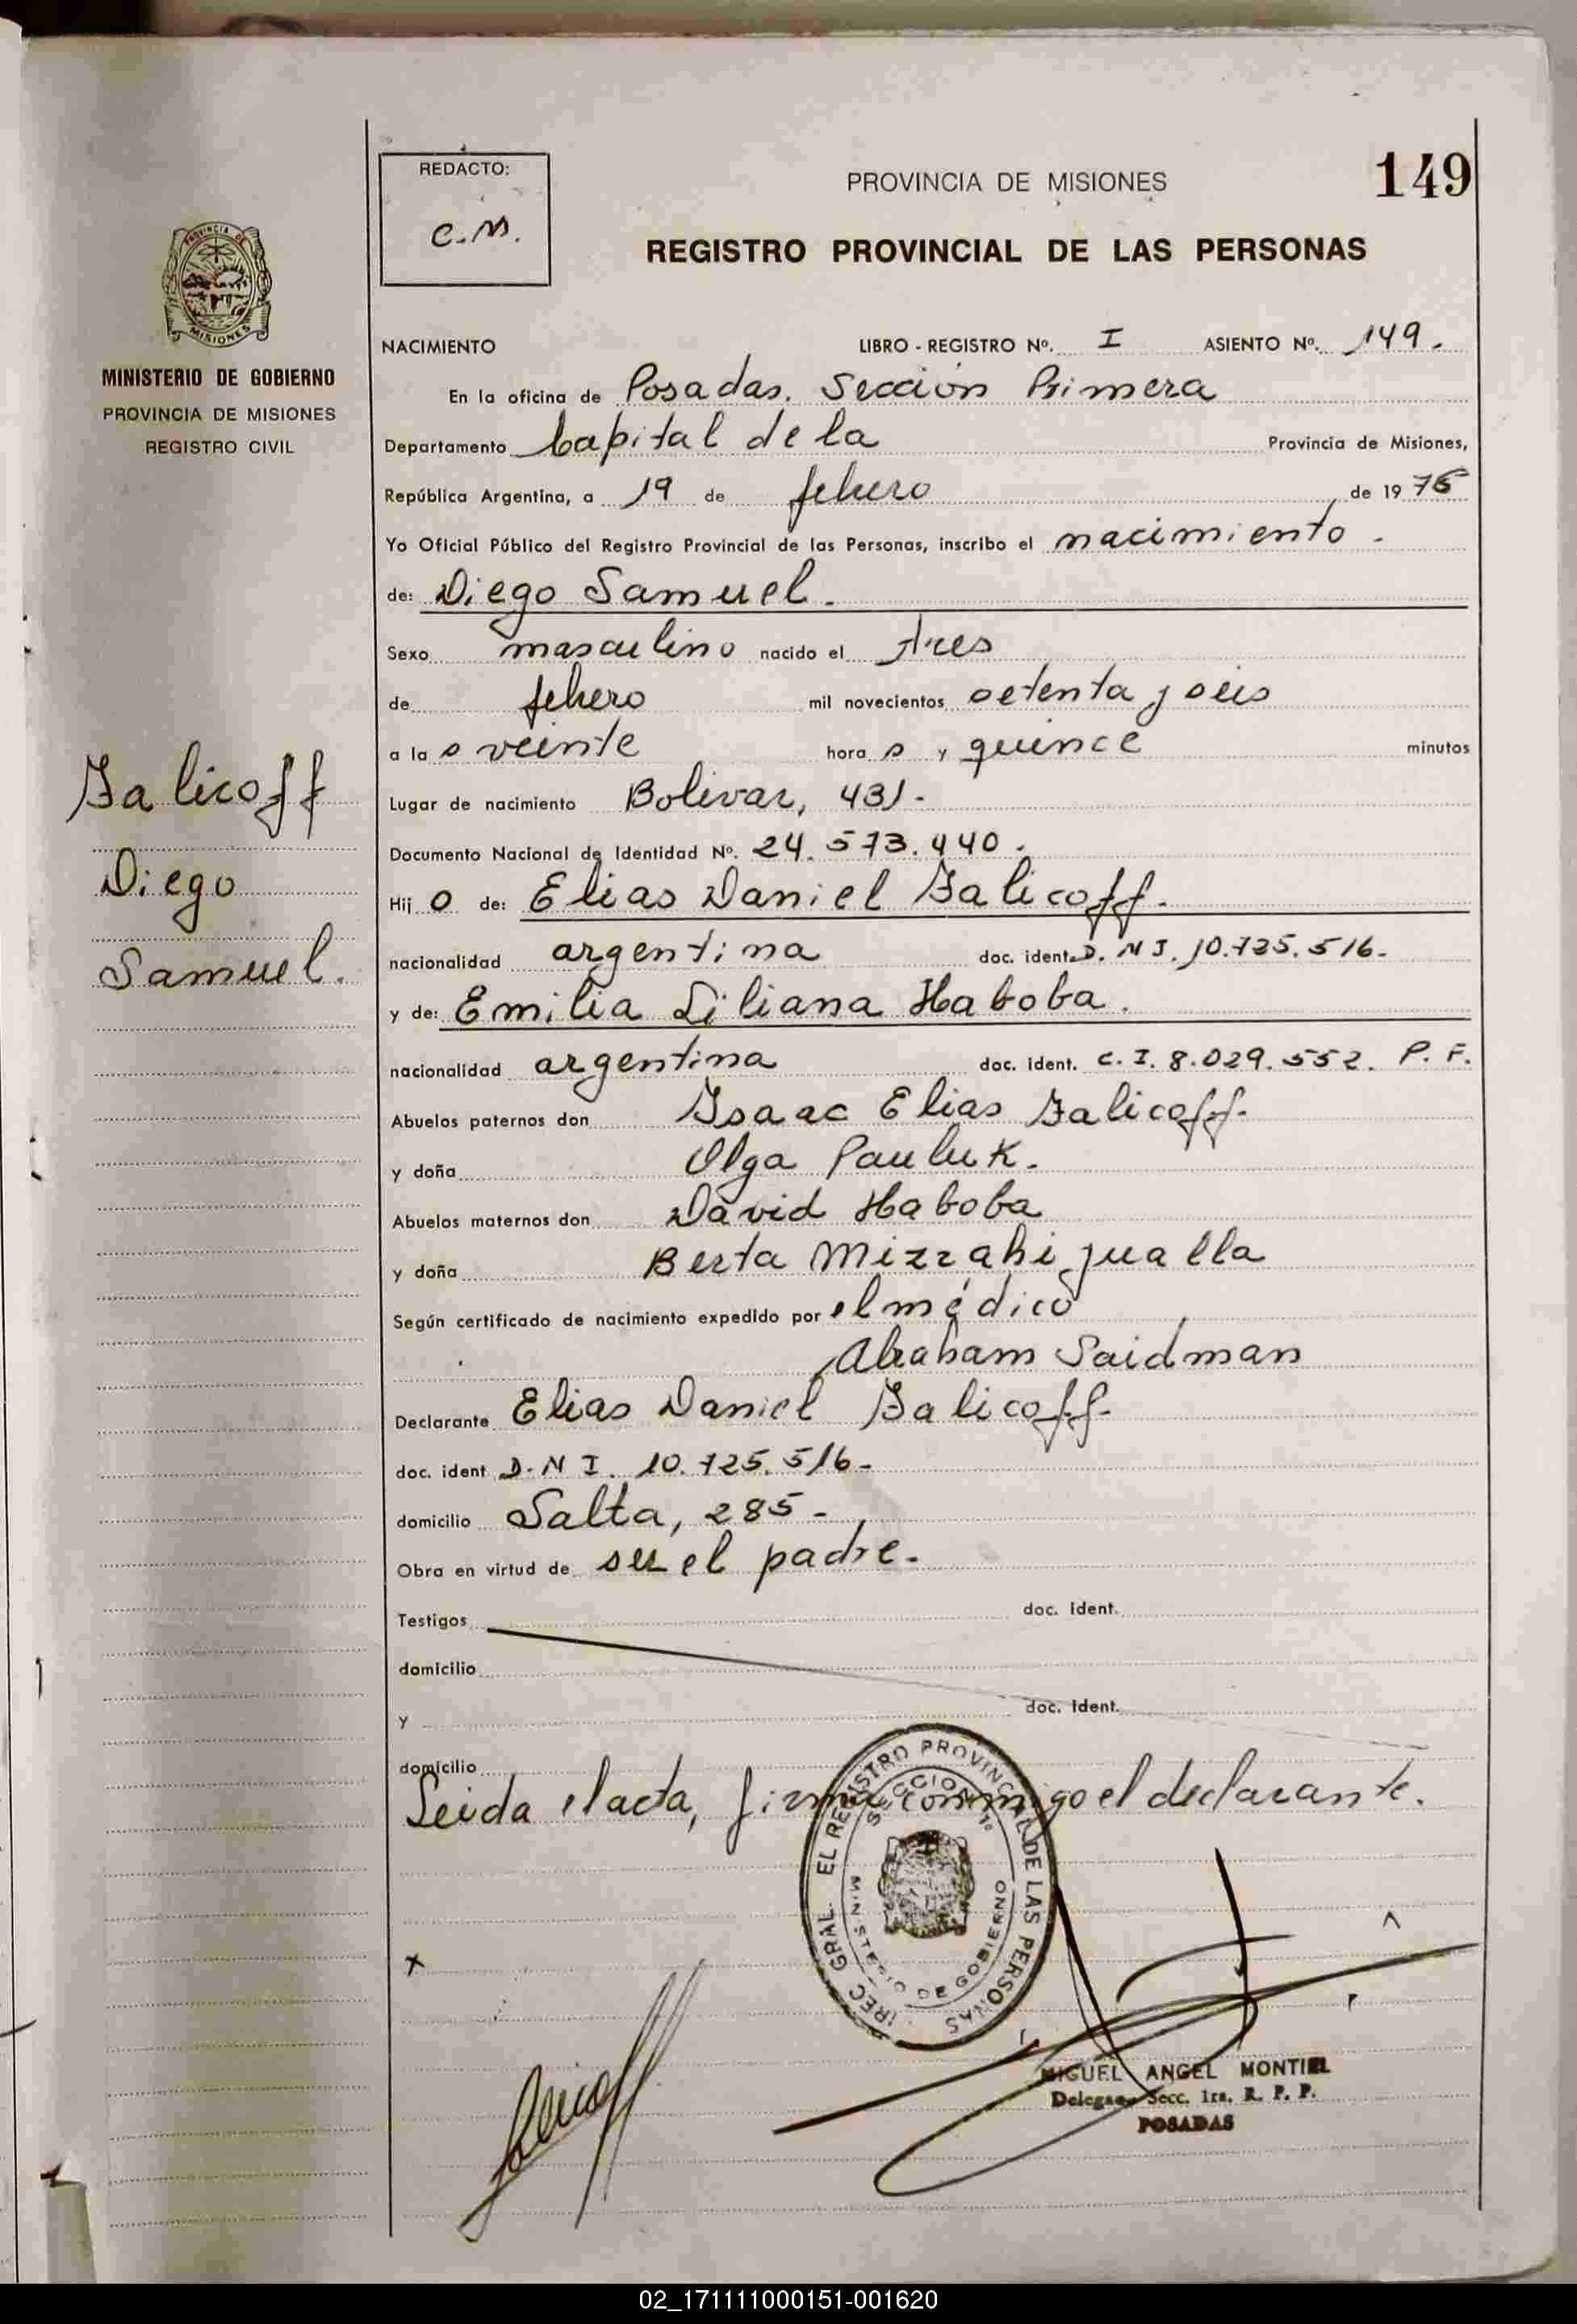 149
REDACTO:
C.M.
PROVINCIA DE MISIONES
REGISTRO PROVINCIAL DE LAS PERSONAS
PROVINCIA DE
MISIONES
MINISTERIO DE GOBIERNO
PROVINCIA DE MISIONES
REGISTRO CIVIL
NACIMIENTO LIBRO - REGISTRO Nº. I ASIENTO Nº. 149.
En la oficina de Posadas. Sección Primera
Departamento Capital de la Provincia de Misiones,
República Argentina, a 19 de febrero de 1976
Yo Oficial Público del Registro Provincial de las Personas, inscribo el nacimiento.
de: Diego Samuel.
Sexo masculino nacido el tres
de febrero mil novecientos setenta y seis
a la s veinte hora s y quince minutos
Lugar de nacimiento Bolivar, 431.-
Documento Nacional de Identidad Nº. 24.573.440.
Hij o de: Elias Daniel Zalicoff.
nacionalidad argentina doc. ident. D.N I. 10.725.516.-
y de: Emilia Liliana Haboba.
nacionalidad argentina doc. ident. C.I. 8.029.552. P.F.
Abuelos paternos don Isaac Elias Zalicoff.
y doña Olga Pauluk.
Abuelos maternos don David Haboba
y doña Berta Mizrahi jualla
Según certificado de nacimiento expedido por el médico
Abraham Saidman
Declarante Elias Daniel Zalicoff.
doc. ident D.N I. 10.725.516-
domicilio Salta, 285-
Obra en virtud de ser el padre.
Testigos doc. ident.
domicilio
y doc. ident.
domicilio
Leida el acta, firma conmigo el declarante.
Zalicoff
Diego
Samuel.
IREC GRAL. EL REGISTRO PROVINCIAL DE LAS PERSONAS
SECCION 1ra
MINISTERIO DE GOBIERNO
x
MIGUEL ANGEL MONTIEL
Delegado Secc. 1ra. R. P. P.
POSADAS
02_171111000151-001620